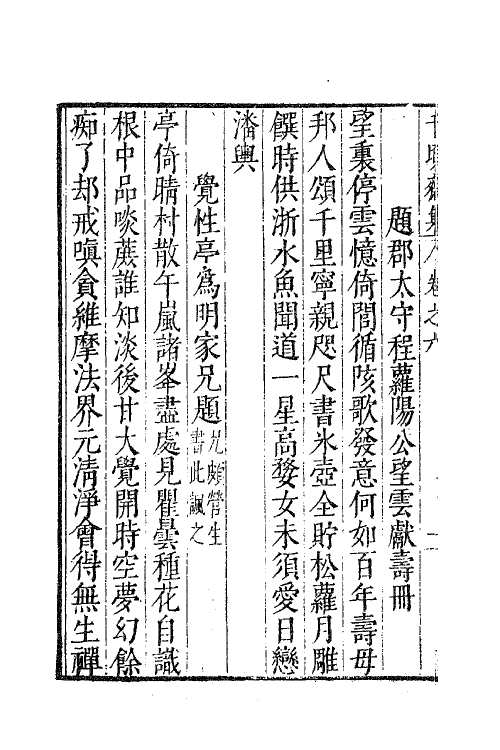 題郡太守程蘿陽公望雲獻壽冊
望裏停雲憶倚閭循陔歌發意何如百年壽母
邦人頌千里寧親咫尺書氷壺全貯松蘿月雕
饌時供浙水魚聞道一星高婺女未須愛日戀
潘輿
覺性亭爲明家兄題兄頗營生書此諷之
亭倚晴村散午嵐諸峯盡處見瞿曇種花自識
根中品啖蔗誰知淡後甘大覺開時空夢幻餘
痴了却戒嗔貪維摩法界元清淨會得無生禪